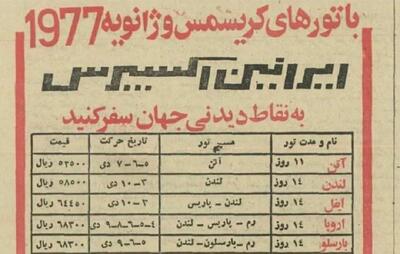 با تورهای کریسمس و ژانویه 1977
ایرانین اکسپرس
به نقاط دیدنی جهان سفر کنید
نام و مدت تور مسیر تور تاریخ حرکت قیمت
آتن ۱۱ روز آتن ۵-۶-۷ دی ۵۲۵۰۰ ریال
لندن ۱۴ روز لندن ۳-۱۰ دی ۵۸۵۰۰ ریال
ایفل ۱۴ روز لندن - پاریس ۳-۱۰ دی ۶۴۴۵۰ ریال
اروپا ۱۴ روز رم - پاریس - لندن ۴-۵-۶-۸-۹ دی ۶۸۳۰۰ ریال
بارسلو ۱۴ روز رم - بارسلون - لندن ۵-۶-۹ دی ۶۸۳۰۰ ریال